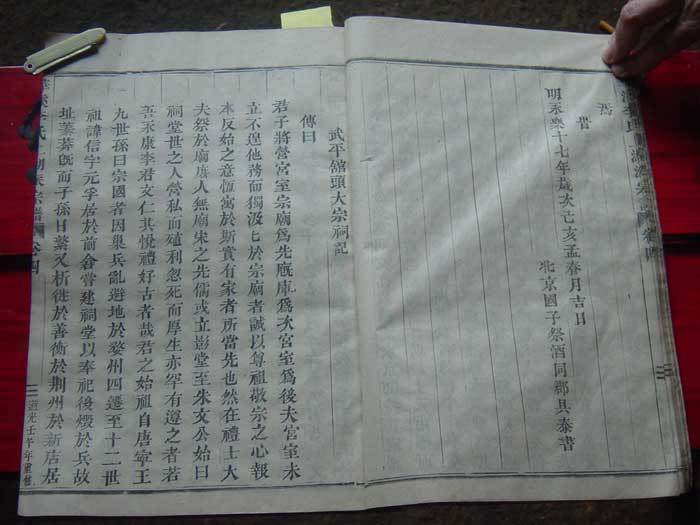 焉
昔
明永樂十七年歲次己亥孟春月吉日
北京國子祭酒同郡具泰書
武平舘頭大宗祠記
傳曰
君子將營宮室宗廟爲先廐庫爲次宮室爲後夫宮室未
立不遑他務而獨汲匕於宗廟者誠以尊祖敬宗之心報
本反始之意恆寓於斯實有家者所當先也然在禮上大
夫祭於廟庶人無廟宋之先儒或立影堂至朱文公始曰
祠堂世之人營私而殖利忽死而厚生亦罕有遵之者若
吾永康李君文仁其悅禮好古者哉君之始祖自唐寧王
九世孫曰宗國者因巢兵亂避地於婺州四遷至十二世
祖諱信字元孚居於前倉嘗建祠堂以奉祀後燬於兵故
址蓁蓁旣而子孫日蕃又析徙於善衡於荆州於新店居
宗譜
卷四
道光壬午年重修